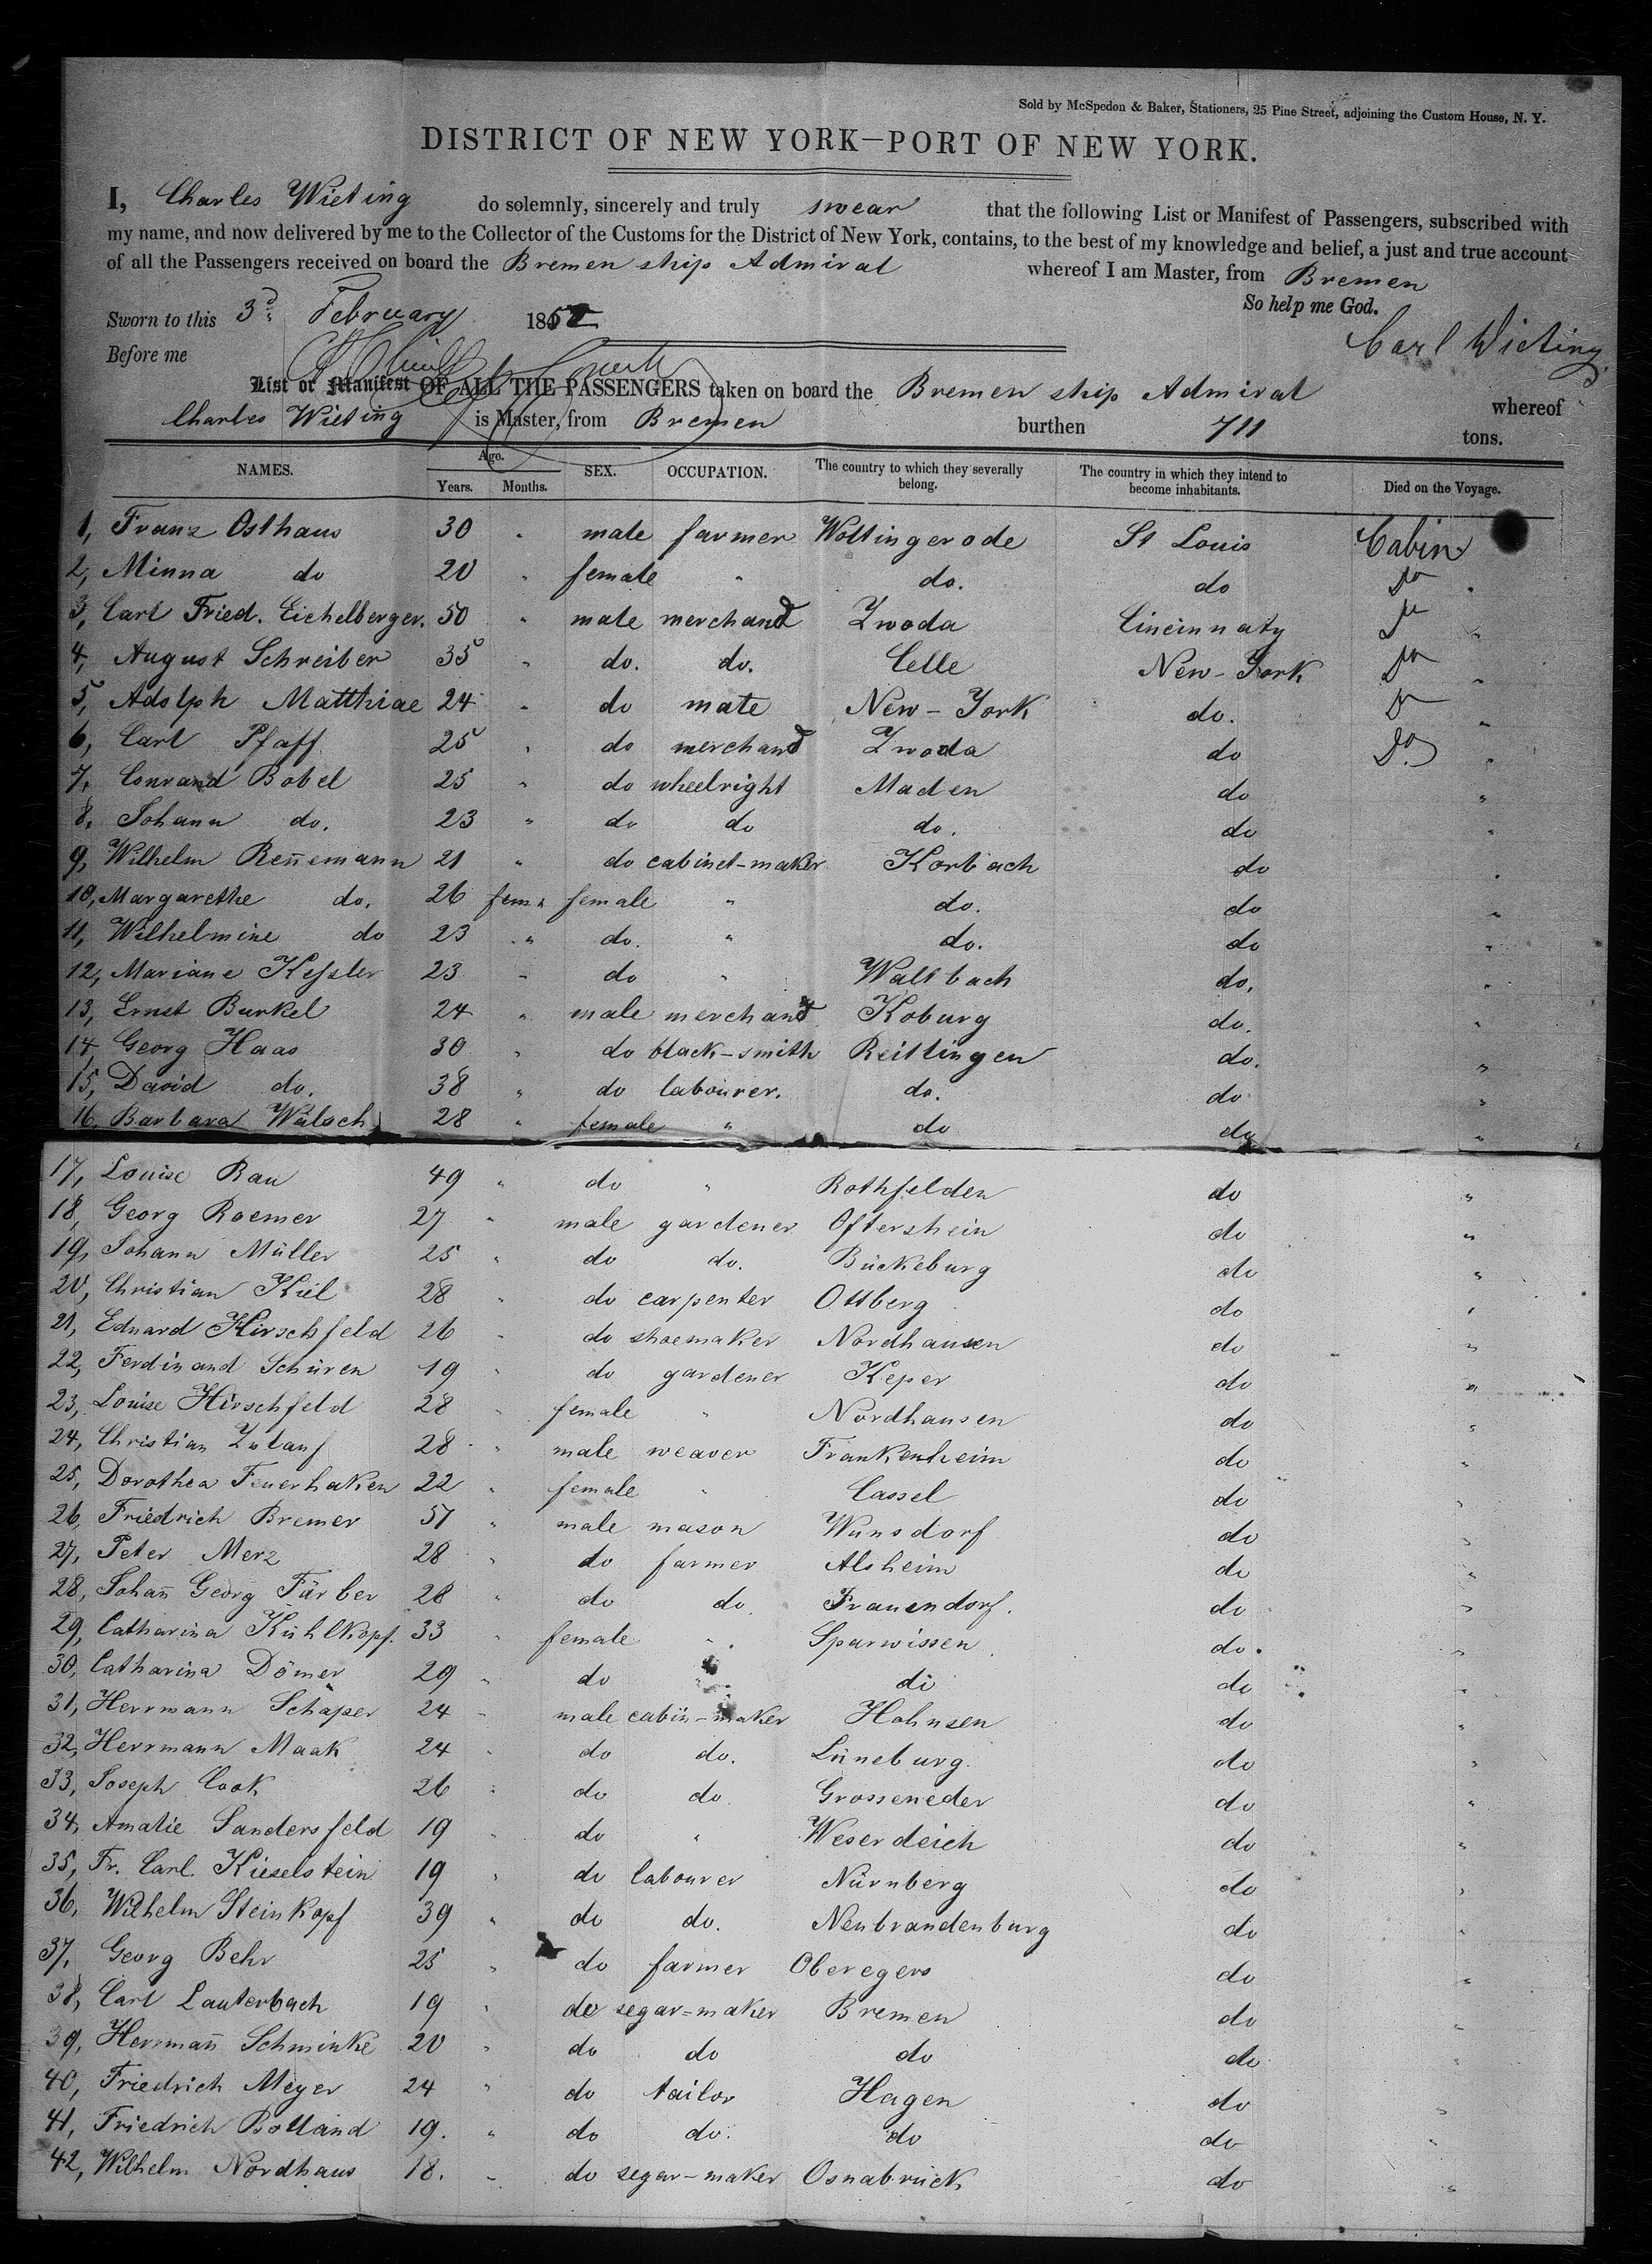 Sold by McSpedon & Baker, Stationers, 25 Pine Street, adjoining the Custom House, N. Y.
DISTRICT OF NEW YORK—PORT OF NEW YORK.
I, Charles Wieting do solemnly, sincerely and truly swear that the following List or Manifest of Passengers, subscribed with
my name, and now delivered by me to the Collector of the Customs for the District of New York, contains, to the best of my knowledge and belief, a just and true account
of all the Passengers received on board the Bremen ship Admiral whereof I am Master, from Bremen
So help me God.
Sworn to this 3d February 185
Before me
Carl Wieting
List or Manifest OF ALL THE PASSENGERS taken on board the Bremen ship Admiral whereof
Charles Wieting is Master, from Bremen burthen 711 tons.
NAMES. Age. Years. Months. SEX. OCCUPATION. The country to which they severally belong. The country in which they intend to become inhabitants. Died on the Voyage.
1, Franz Osthaus 30 " male farmer Woltingerode St Louis Cabin
2, Minna do 20 " female " do. do Do "
3, Carl Fried. Eichelberger. 50 " male merchand Zwoda Cincinnaty Do "
4, August Schreiber 35 " do. do. Celle New-York Do "
5, Adolph Matthiae 24 " do mate New-York do. Do "
6, Carl Pfaff 25 " do merchand Zwoda do Do "
7, Conrad Bobel 25 " do wheelright Maden do "
8, Johann do. 23 " do do do. do "
9, Wilhelm Rennemann 21 " do cabinet-maker Korbach do "
10, Margarethe do. 26 fem " female " do. do "
11, Wilhelmine do 23 " do. " do. do "
12, Mariane Kessler 23 " do " Waltbach do, "
13, Ernst Burkel 24 " male merchand Koburg do. "
14, Georg Haas 30 " do black-smith Reitlingen do. "
15, David do. 38 " do labourer. do. do "
16, Barbara Walsch 28 " female " do do "
17, Louise Rau 49 " do " Rothfelden do "
18, Georg Roemer 27 " male gardener Oftershein do "
19, Johann Müller 25 " do do. Bückeburg do "
20, Christian Kiel 28 " do carpenter Ottberg do "
21, Eduard Hirschfeld 26 " do shoemaker Nordhausen do "
22, Ferdinand Schüren 19 " do gardener Keper do "
23, Louise Hirschfeld 28 " female " Nordhausen do "
24, Christian 28 " male weaver Frankenheim do "
25, Dorothea Feuerhaken 22 " female " Cassel do "
26, Friedrich Bremer 51 " male mason Wunsdorf do "
27, Peter Merz 28 " do farmer Alsheim do "
28, Johan̄ Georg Färber 28 " do do. Frauendorf. do "
29, Catharina Kühlkopf. 33 " female " Sparwissen do. "
30, Catharina Dömer 29 " do " do do "
31, Herrmann Schaper 24 " male cabin-maker Hohnsen do "
32, Herrmann Maak 24 " do do. Lüneburg. do "
33, Joseph Cook 26 " do do Grosseneder do "
34, Amalie Sandersfeld 19 " do " Weserdeich do "
35, Fr. Carl. Kieselstein 19 " do labourer Nürnberg do "
36, Wilhelm Steinkopf 39 " do do. Neubrandenburg do "
37, Georg Behr 25 " do farmer Oberegers do "
38, Carl Lauterbach 19 " do segar-maker Bremen do "
39, Herrman̄ Schminke 20 " do do do do "
40, Friedrich Meyer 24 " do tailor Hagen do "
41, Friedrich Bolland 19. " do do. do do "
42, Wilhelm Nordhaus 18. " do segar-maker Osnabrück do "